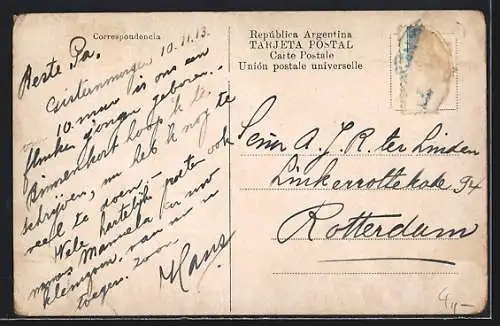 Correspondencia
República Argentina
TARJETA POSTAL
Carte Postale
Unión postale universelle
10.11.13.
Beste Pa.
Gisterenmorgen
10 uur is ons een
flinke jongen geboren.
Binnenkort loop ik te
schrijven, nu heb ik nog te
veel te doen.
Vele hartelijke groeten ook
namens Manuela en uw
kleinzoon, van uw
toegen. zoon
Hans
Señor A. J. R. ter Linden
Linkerrottekade 94
Rotterdam